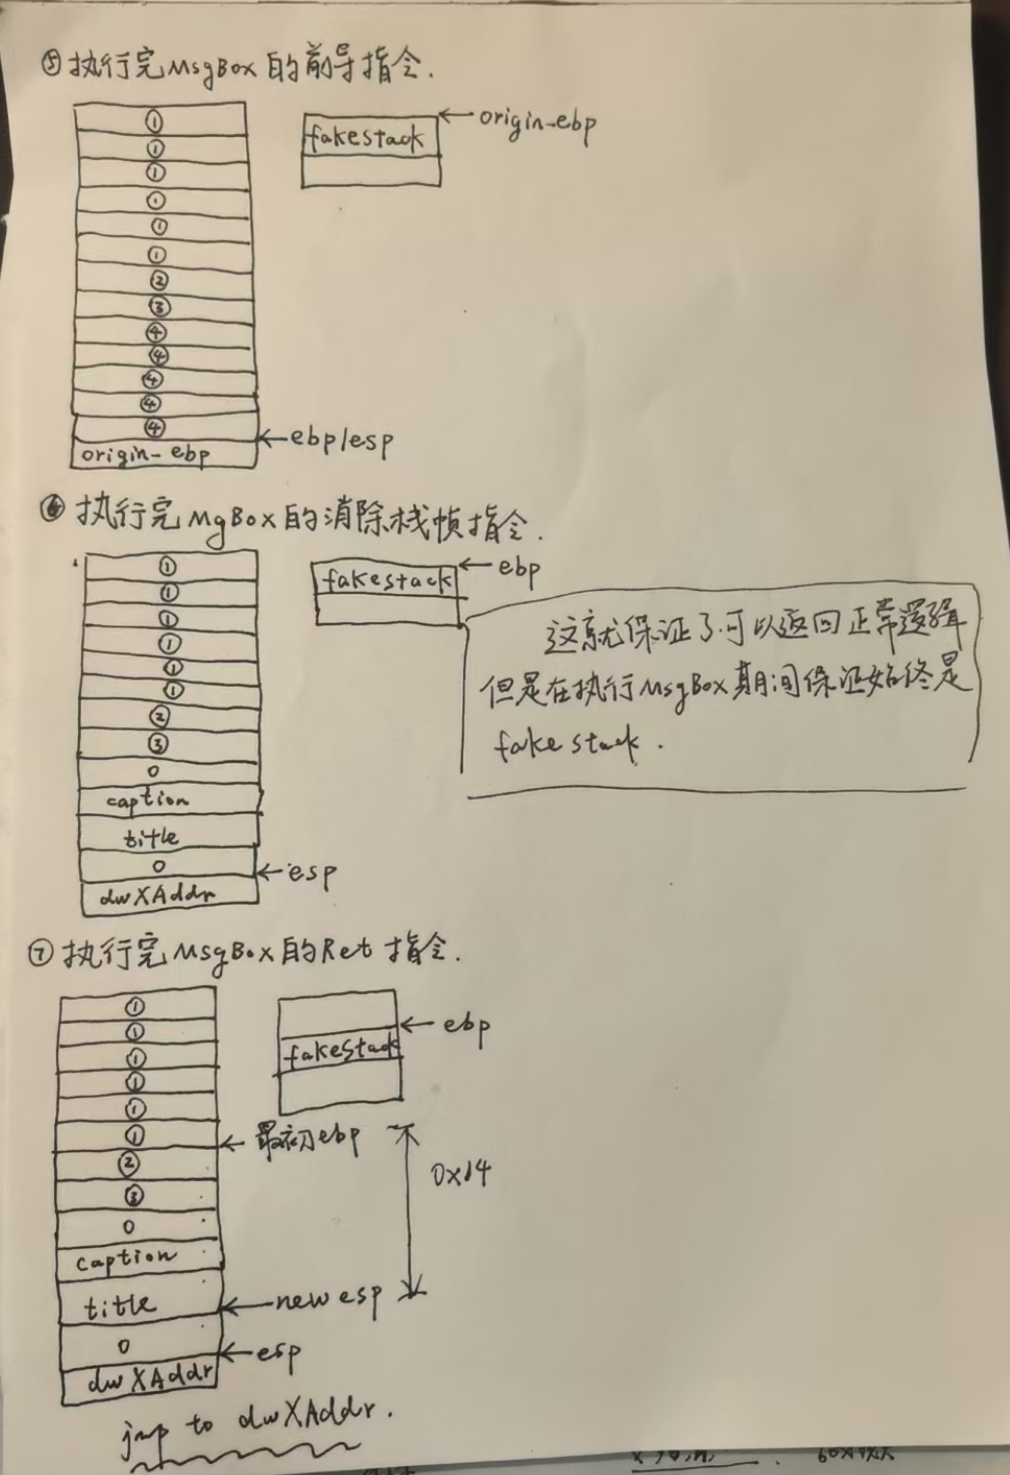 ⑤执行完MsgBox的前导指令.
①
①
①
①
①
①
②
③
④
④
④
④
④
origin-ebp
fakestack
←origin-ebp
←ebp/esp
⑥执行完MgBox的消除栈帧指令.
①
①
①
①
①
①
②
③
0
caption
title
0
dwXAddr
fakestack
←ebp
←esp
这就保证了可以返回正常逻辑
但是在执行MsgBox期间保证始终是
fake stack.
⑦执行完MsgBox的Ret指令.
①
①
①
①
①
①
②
③
0
caption
title
0
dwXAddr
fakestack
←ebp
←最初ebp
0x14
←new esp
←esp
jmp to dwXAddr.